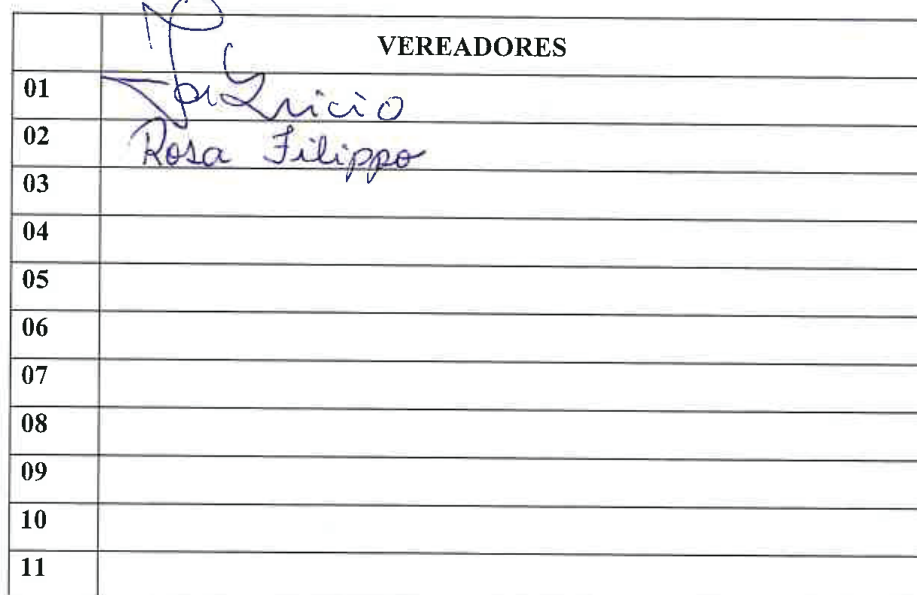 VEREADORES
01
02 Rosa Filippo
03
04
05
06
07
08
09
10
11